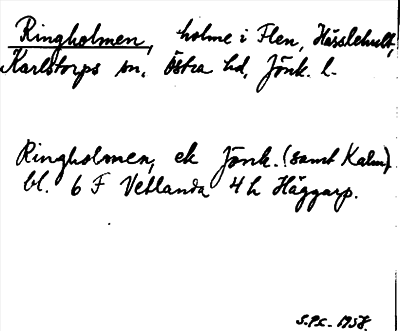 Ringholmen, holme i Flen, Hässlehult,
Karlstorps sn, Östra hd, Jönk. l.
Ringholmen, ek Jönk. (samt Kalm)
bl. 6 F Vetlanda 4 h Häggarp.
S.P.c. 1958.